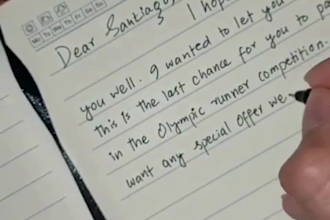 Mo Tu We Th Fr Sa Su
Dear Santiago,
I hop
you well. I wanted to let you
this is the last chance for you to pa
in the Olympic runner competition.
want any special offer we